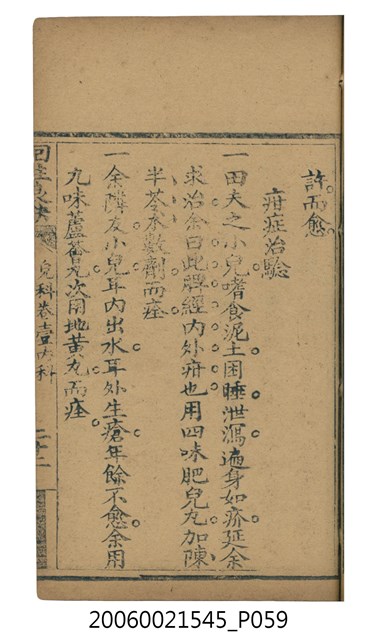 許而愈
疳症治驗
一田夫之小兒嗜食泥土困睡泄瀉遍身如疥延余
求治余曰此脾經內外疳也用四味肥兒丸加陳
半苓朮數劑而痊
一余隣友小兒耳內出水耳外生瘡年餘不愈余用
九味蘆薈丸次用地黃丸而痊
回生
兒科卷壹內科
20060021545_P059